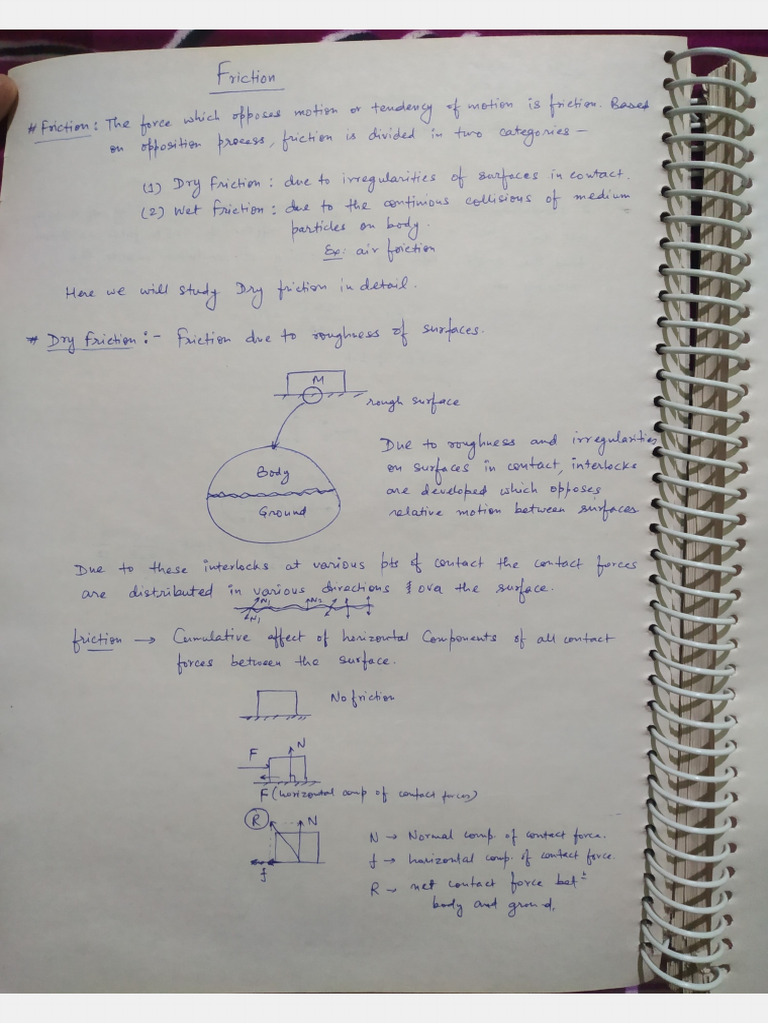 Friction
# Friction : The force which opposes motion or tendency of motion is friction. Based
on opposition process, friction is divided in two categories –
(1) Dry Friction : due to irregularities of surfaces in contact.
(2) Wet Friction : due to the continious collisions of medium
particles on body.
Ex: air friction
Here we will study Dry friction in detail.
* Dry Friction :- Friction due to roughness of surfaces.
M
rough surface
Due to roughness and irregularities
on surfaces in contact, interlocks
are developed which opposes
relative motion between surfaces
Body
Ground
Due to these interlocks at various pts of contact the contact forces
are distributed in various directions & ova the surface.
N1 N2
N1
friction → Cumulative effect of horizontal Components of all contact
forces between the surface.
No friction
F N
F (horizontal comp of contact forces)
R N
f
N → Normal comp. of contact force.
f → horizontal comp. of contact force.
R → net contact force bet±
body and ground.